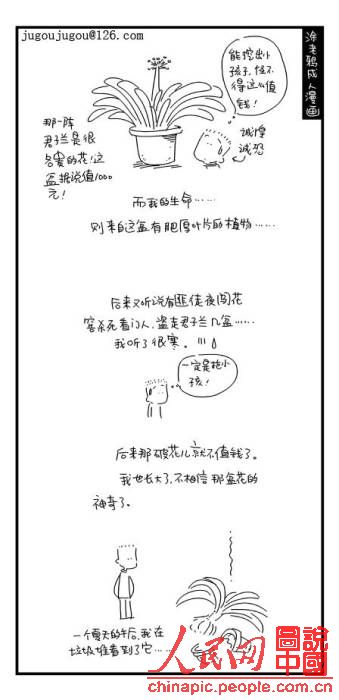 jugoujugou@126.com
涂老鸦成人漫画
能挖出小
孩子,怪不
得这么值
钱!
那一阵
君子兰是很
名贵的花!这
盆据说值1000
元!
诚惶
诚恐
而我的生命……
则来自这盆有肥厚叶片的植物……
后来又听说有匪徒夜闯花
窖杀死看门人,盗走君子兰几盆……
我听了很寒。
一定是挖小
孩!
后来那破花儿就不值钱了。
我也长大了,不相信那盆花的
神奇了。
一个夏天的午后,我在
垃圾堆看到了它……
人民网
图说中国
chinapic.people.com.cn